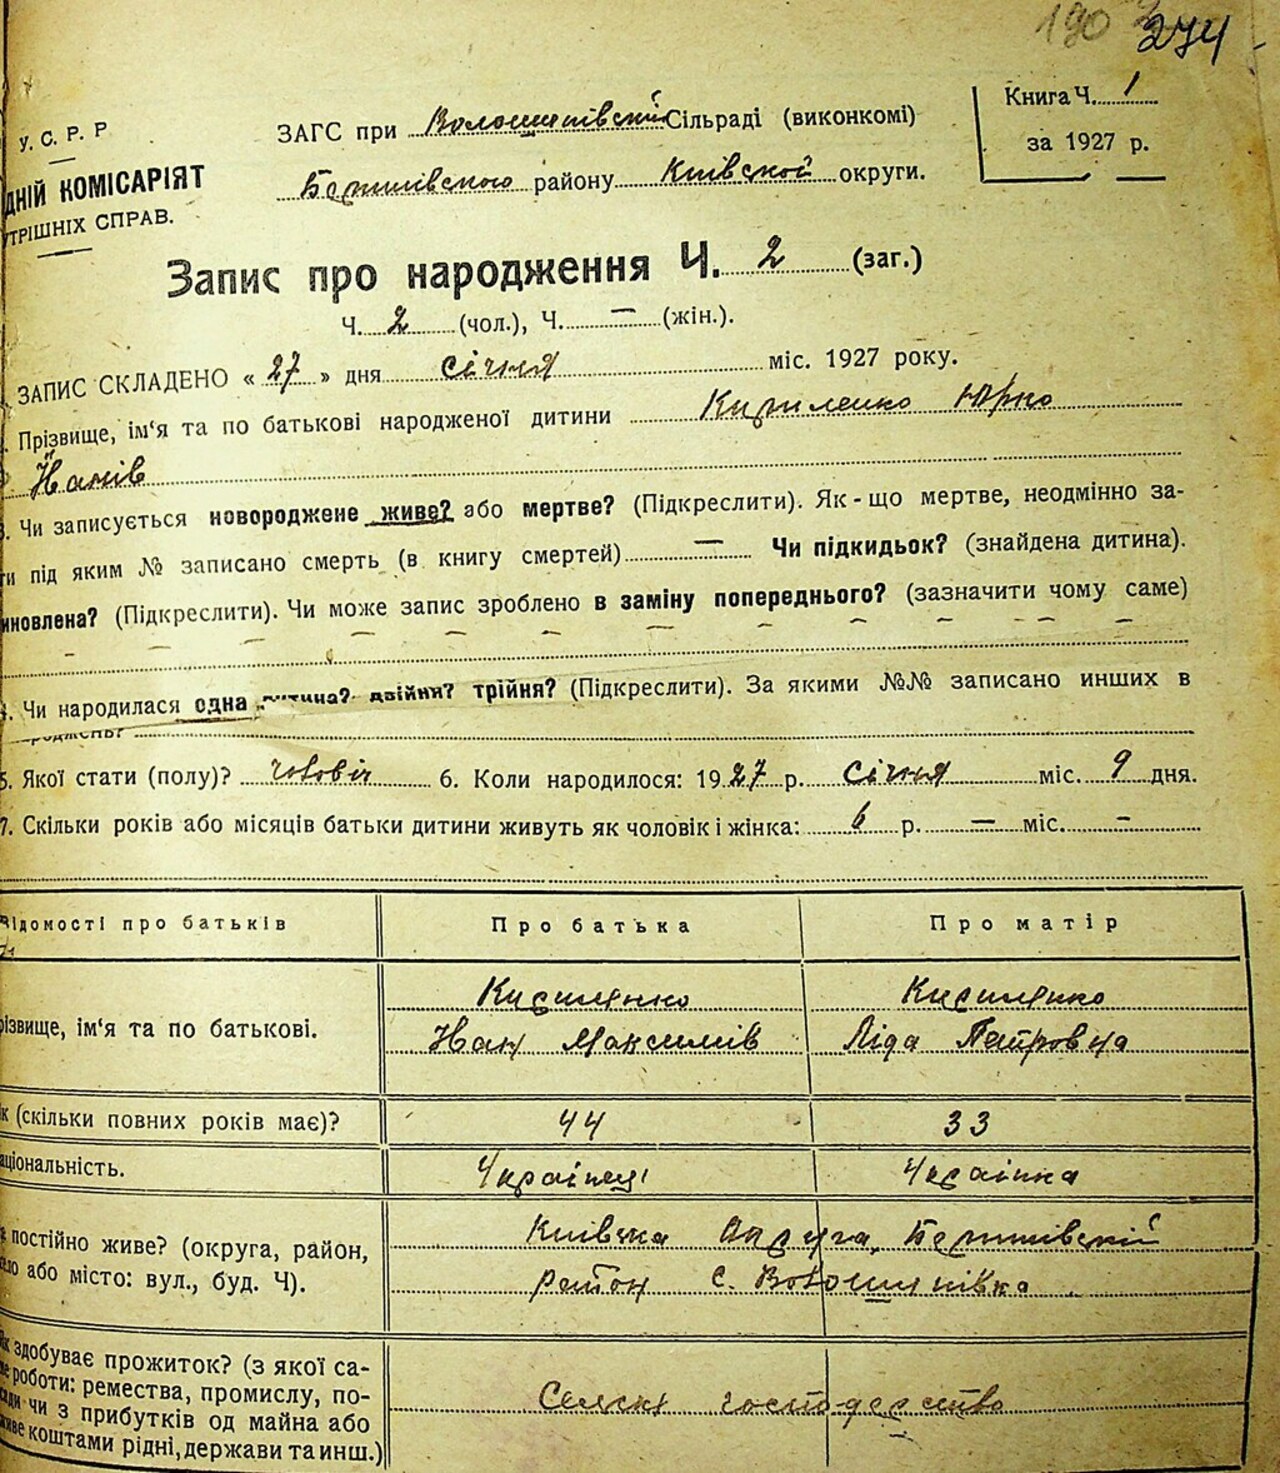 274
У. С. Р. Р
ЗАГС при Волошинівській Сільраді (виконкомі)
Книга Ч. 1
за 1927 р.
ДНІЙ КОМІСАРІЯТ
ТРІШНІХ СПРАВ.
району Київської округи.
Запис про народження Ч. 2 (заг.)
Ч. 2 (чол.), Ч. — (жін.).
ЗАПИС СКЛАДЕНО « 27 » дня січня міс. 1927 року.
Прізвище, ім'я та по батькові народженої дитини Кириленко Юрко
Йванів
3. Чи записується новороджене живе? або мертве? (Підкреслити). Як-що мертве, неодмінно за-
ти під яким № записано смерть (в книгу смертей) — Чи підкидьок? (знайдена дитина).
иновлена? (Підкреслити). Чи може запис зроблено в заміну попереднього? (зазначити чому саме)
— — — — — — — — — — —
4. Чи народилася одна дитина? двійня? трійня? (Підкреслити). За якими №№ записано инших в
роджень?
5. Якої стати (полу)? 6. Коли народилося: 1927 р. січня міс. 9 дня.
7. Скільки років або місяців батьки дитини живуть як чоловік і жінка: 6 р. — міс. —
відомості про батьків Про батька Про матір
різвище, ім'я та по батькові. Кириленко Кириленко
Йван Максимів Ліда Петровна
ік (скільки повних років має)? 44 33
аціональність. Українці Українка
постійно живе? (округа, район, Київська Округа,
ело або місто: вул., буд. Ч). район с. Волошинівка
Як здобуває прожиток? (з якої са-
ме роботи: ремества, промислу, по-
сади чи з прибутків од майна або Сельске господерство
живе коштами рідні, держави та инш.)